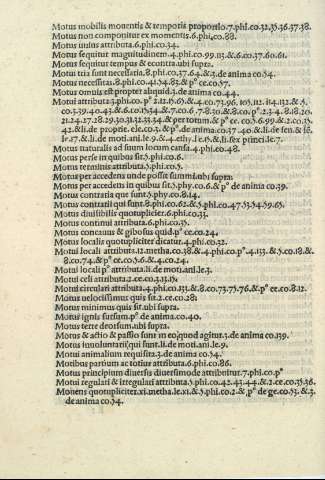 Motus mobilis mouentis & temporis proportio.7.phi.co.32.35.36.37.38.
Motus non componitur ex momentis.6.phi.co.88.
Motus uiuis attributa.6.phi.co.34.
Motus sequitur magnitudinem.4.phi.co.99.113.&.6.co.37.60.61.
Motus sequitur tempus & econtra.ubi supra.
Motus tria sunt necessaria.8.phi.co.37.64.&.3.de anima co.54.
Motus necessitas.8.phi.co.41.54.83.&.pº ce.co.57.
Motus omnis est propter aliquid.3.de anima co.44.
Motui attributa.3.phi.co.
co.3.39.40.43.&.6.co.15.54.&.7.co.6.7.8.30.&.8.co.
21.24.27.28.29.30.31.32.33.34.& per totum.&.pº ce.co.5.6.99.&.2.co.35.
42.&.li.de proprie.ele.co.3.&.pº de anima.co.37.40.&.li.de sen.&
&.li.de moti.ani.le.9.&.4.ethy.l.e.5.&.li.sex princi.le.7.
Motus naturalis ad suum locum causa.4.phi.co.48.
Motus perse in quibus sit.5.phi.co.6.
Motus terminis attributa.5.phi.co.5.
Motus per accedens unde possit summi.ubi supra.
Motus per accedens in quibus sit.5.phy.co.6.& pº de anima co.39.
Motus contraria que sunt.5.phy.co.8.14.
Motus contrarii qui sunt.8.phi.co.62.&.5.phi.co.47.53.54.59.65.
Motus diuisibilis quotupliciter.6.phi.co.33.
Motus continui attributa.5.phi.co.36.
Motus concauus & gibosus quid.pº ce.co.24.
Motus localis quotupliciter dicatur.4.phi.co.32.
Motui locali attributa.12.metha.co.38.&.4.phi.co.
8.co.74.&.pº ce.co.5.6.&.4.co.24.
Motui locali pº attributa.li.de moti.ani.le.3.
Motui celi attributa.2.ce.co.3.13.15:
Motui circulari attributa.4.phi.co.133.&.8.co.73.75.76.&.pº ce.co.8.12.
Motus uelocissimus quis sit.2.ce.co.28:
Motus minimus quis sit.ubi supra.
Motus ignis sursum.pº de anima co.40.
Motus terre deorsum.ubi supra.
Motus & actio & passio sunt in eo,quod agitur.3.de anima co.139.
Motus inuoluntarii qui sunt.li.de moti.ani.le.9.
Motui animalium requisita.3.de anima co.54.
Motibus partium ac totius attributa.6.phi.co.86.
Motus principium diuersis diuersimode attribuitur.7.phi.co.pº
Motui regulari & irregulari attributa.5.phi.co.42.43.44.&.2.ce.co.35.36.
Mouens quotupliciter.xi.metha.le.xi.&.5.phi.co.2.&.pº de ge.co.53.&.3.
de anima co.54.